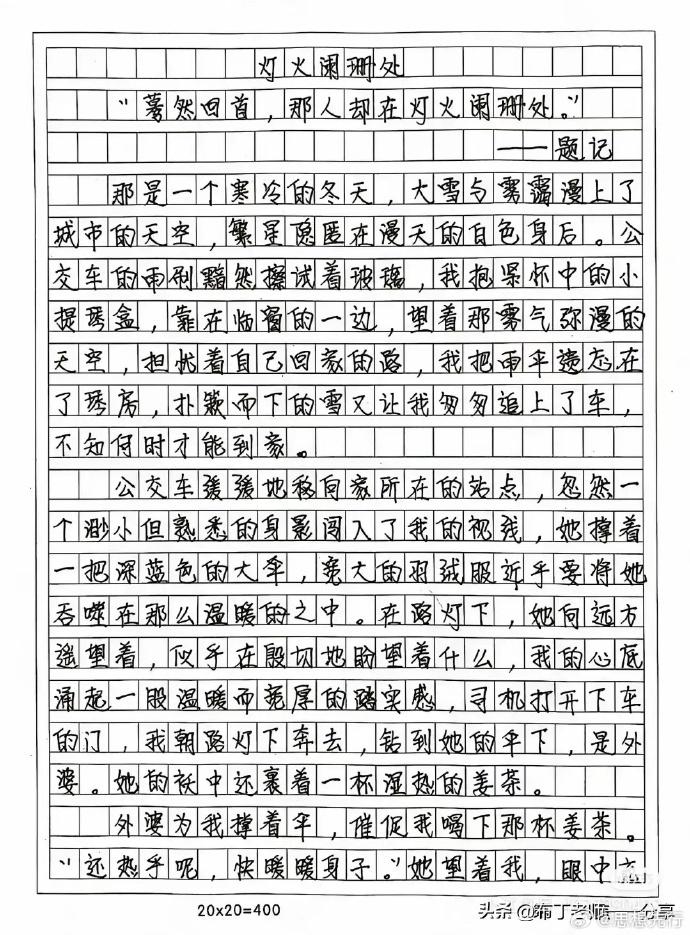 灯火阑珊处
“蓦然回首，那人却在灯火阑珊处。”
——题记
那是一个寒冷的冬天，大雪与雾霭漫上了
城市的天空，繁星隐匿在漫天的白色身后。公
交车的雨刷黯然擦试着玻璃，我抱紧怀中的小
提琴盒，靠在临窗的一边，望着那雾气弥漫的
天空，担忧着自己回家的路，我把雨伞遗忘在
了琴房，扑簌而下的雪又让我匆匆追上了车，
不知何时才能到家。
公交车缓缓地移向家所在的站点，忽然一
个渺小但熟悉的身影闯入了我的视线，她撑着
一把深蓝色的大伞，宽大的羽绒服近乎要将她
吞噬在那么温暖的之中。在路灯下，她向远方
遥望着，似乎在殷切地盼望着什么，我的心底
涌起一股温暖而宽厚的踏实感，司机打开下车
的门，我朝路灯下奔去，钻到她的伞下，是外
婆。她的袄中还裹着一杯湿热的姜茶。
外婆为我撑着伞，催促我喝下那杯姜茶。
“还热乎呢，快暖暖身子。”她望着我，眼中
20×20=400
头条@布丁老师一分享
@思想先行